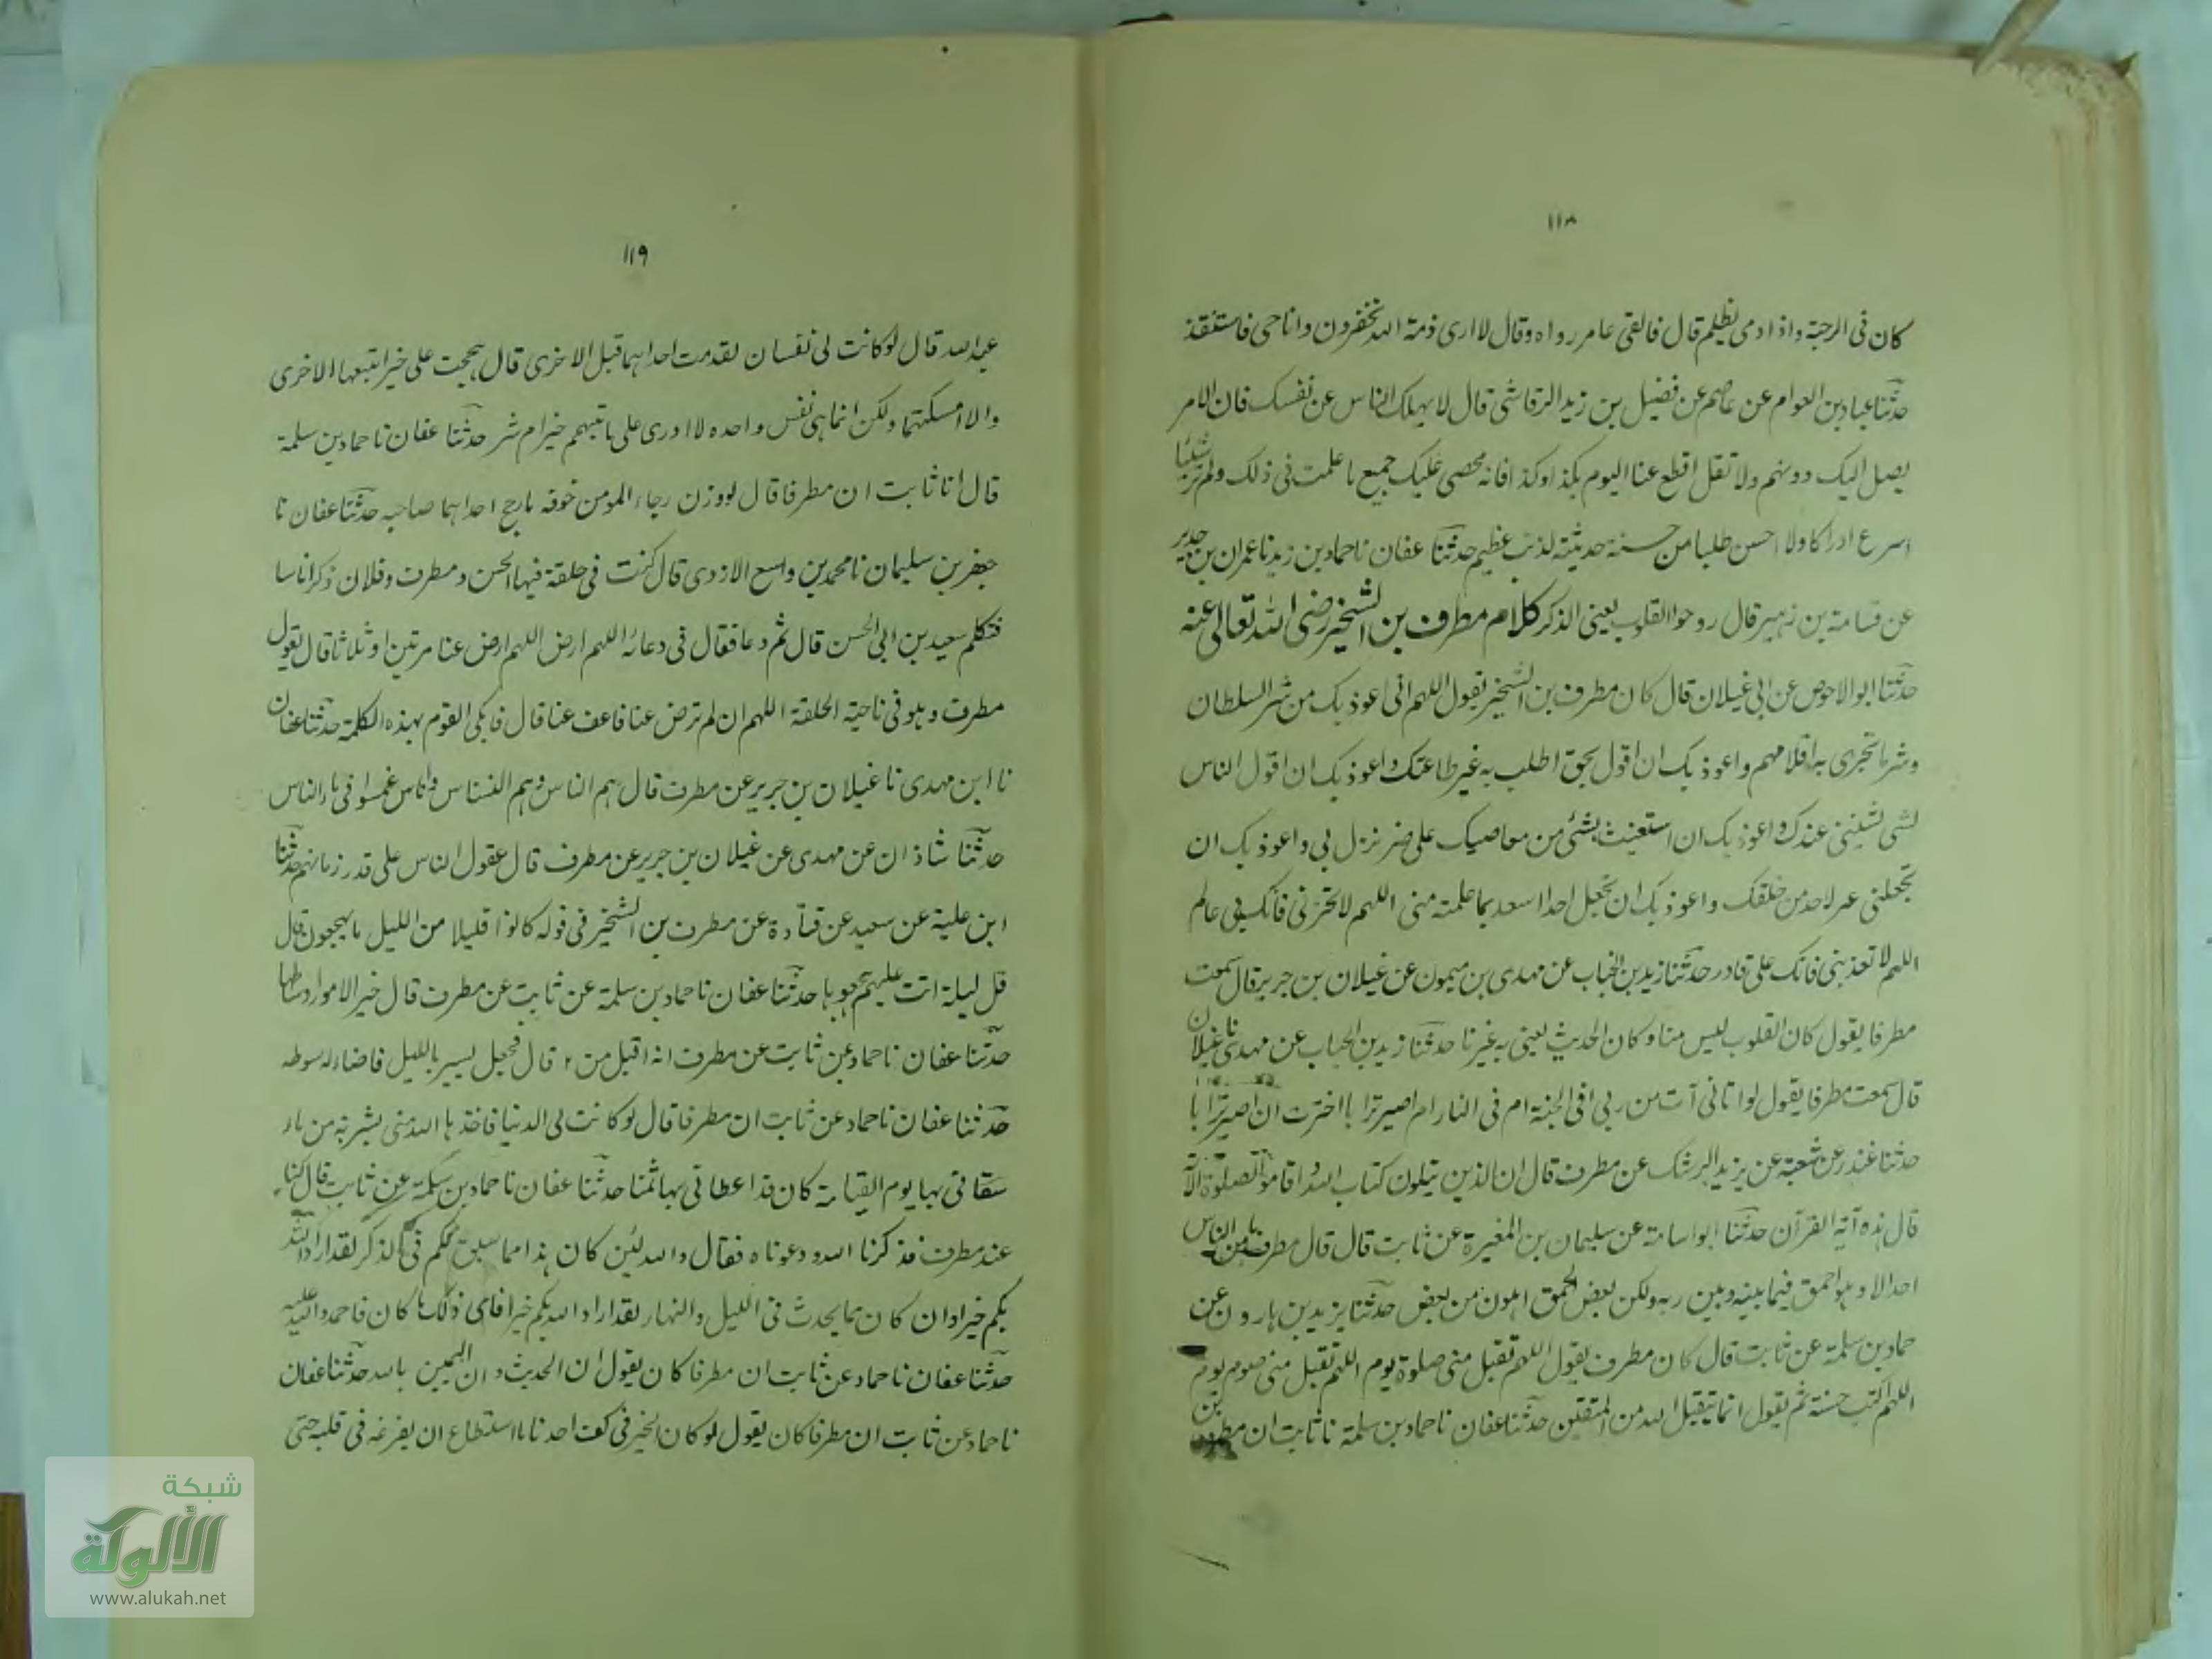 ١١٨
كان فى الرحبة واذا ذمى يظلم قال فالقى عامر رداه وقال لا ارى ذمة الله تخفرون وانا حى فاستنقذ
حدثنا عباد بن العوام عن عاصم عن فضيل بن زيد الرقاشى قال لا يهلك الناس عن نفسك فان الامر
يصل اليك دونهم ولا تقل اقطع عنا اليوم بكذا وكذا فانه محصى عليك جميع ما علمت فى ذلك ولم تر شيئا
اسرع ادراكا ولا احسن طلبا من حسنة حديثة لذنب عظيم حدثنا عفان نا حماد بن زيد نا عمران بن حدير
عن قسامة بن زهير قال روحوا القلوب يعنى الذكر كلام مطرف بن الشخير رضى الله تعالى عنه
حدثنا ابو الاحوص عن ابى غيلان قال كان مطرف بن الشخير يقول اللهم انى اعوذ بك من شر السلطان
وشر ما تجرى به اقلامهم واعوذ بك ان اقول بحق اطلب به غير طاعتك واعوذ بك ان اقول الناس
بشى يشيننى عندك واعوذ بك ان استغيث بشئ من معاصيك على ضر نزل بى واعوذ بك ان
تجعلنى عبر لاحد من خلقك واعوذ بك ان تجعل احدا اسعد بما علمته منى اللهم لا تخزنى فانك بى عالم
اللهم لا تعذبنى فانك على قادر حدثنا زيد بن الحباب عن مهدى بن ميمون عن غيلان بن جرير قال سمعت
مطرفا يقول كان القلوب ليس منا وكان الحديث يعنى به غيرنا حدثنا زيد بن الحباب عن مهدى نا غيلان
قال سمعت مطرفا يقول لو اتانى آت من ربى افى الجنة ام فى النار ام اصير ترابا اخترت ان اصير ترابا
حدثنا غندر عن شعبة عن يزيد الرشك عن مطرف قال ان الذين يتلون كتاب الله واقاموا الصلوة الآية
قال هذه آية القرآن حدثنا ابو اسامة عن سليمان بن المغيرة عن ثابت قال قال مطرف ما من الناس
احد الا وهو احمق فيما بينه وبين ربه ولكن بعض الحمق اهون من بعض حدثنا يزيد بن هارون عن
حماد بن سلمة عن ثابت قال كان مطرف يقول اللهم تقبل منى صلوة يوم اللهم تقبل منى صوم يوم
اللهم اكتب حسنة ثم يقول انما يتقبل الله من المتقين حدثنا عفان نا حماد بن سلمة نا ثابت ان مطرف بن
١١٩
عبد الله قال لو كانت لى نفسان لقدمت احداهما قبل الاخرى قال هجمت على خير اتبعها الاخرى
والا امسكتها ولكن انما هى نفس واحده لا ادرى على ما تهجم خير ام شر حدثنا عفان نا حماد بن سلمة
قال انا ثابت ان مطرفا قال لو وزن رجاء المومن خوفه ما رجح احداهما صاحبه حدثنا عفان نا
جعفر بن سليمان نا محمد بن واسع الازدى قال كنت فى حلقة فيها الحسن ومطرف وفلان ذكرانا سا
فتكلم سعيد بن ابى الحسن قال ثم دعا فقال فى دعائه اللهم ارض اللهم ارض عنا مرتين او ثلاثا قال يقول
مطرف وهو فى ناحية الحلقة اللهم ان لم ترض عنا فاعف عنا قال فابكى القوم بهذه الكلمة حدثنا عفان
نا ابن مهدى نا غيلان بن جرير عن مطرف قال هم الناس وهم النسناس واناس غمسوا فى ماء الناس
حدثنا شاذان عن مهدى عن غيلان بن جرير عن مطرف قال عقول الناس على قدر زمانهم حدثنا
ابن علية عن سعيد عن قتادة عن مطرف بن الشخير فى قوله كانوا قليلا من الليل ما يهجعون قال
قل ليلة اتت عليهم هجوها حدثنا عفان نا حماد بن سلمة عن ثابت عن مطرف قال خير الامور اوساطها
حدثنا عفان نا حماد عن ثابت عن مطرف انه اقبل من قال فجعل يسير بالليل فاضاء له سوطه
حدثنا عفان نا حماد عن ثابت ان مطرفا قال لو كانت لى الدنيا فاخذها الله منى بشربة من ماء
سقانى بها يوم القيامة كان قد اعطانى بها ثمنا حدثنا عفان نا حماد بن سلمة عن ثابت قال كنا
عند مطرف فذكرنا الله ودعوناه فقال والله لئن كان هذا مما سبق لكم فى الذكر لقد اراد الله
بكم خيرا وان كان مما يحدث فى الليل والنهار لقد اراد الله بكم خيرا فاى ذلك ما كان فاحمدوا الله عليه
حدثنا عفان نا حماد عن ثابت ان مطرفا كان يقول ان الحديث وان اليمين بالله حدثنا عفان
نا حماد عن ثابت ان مطرفا كان يقول لو كان الخير فى كف احدنا ما استطاع ان يفرغه فى قلبه حتى
شبكة
الألوكة
www.alukah.net